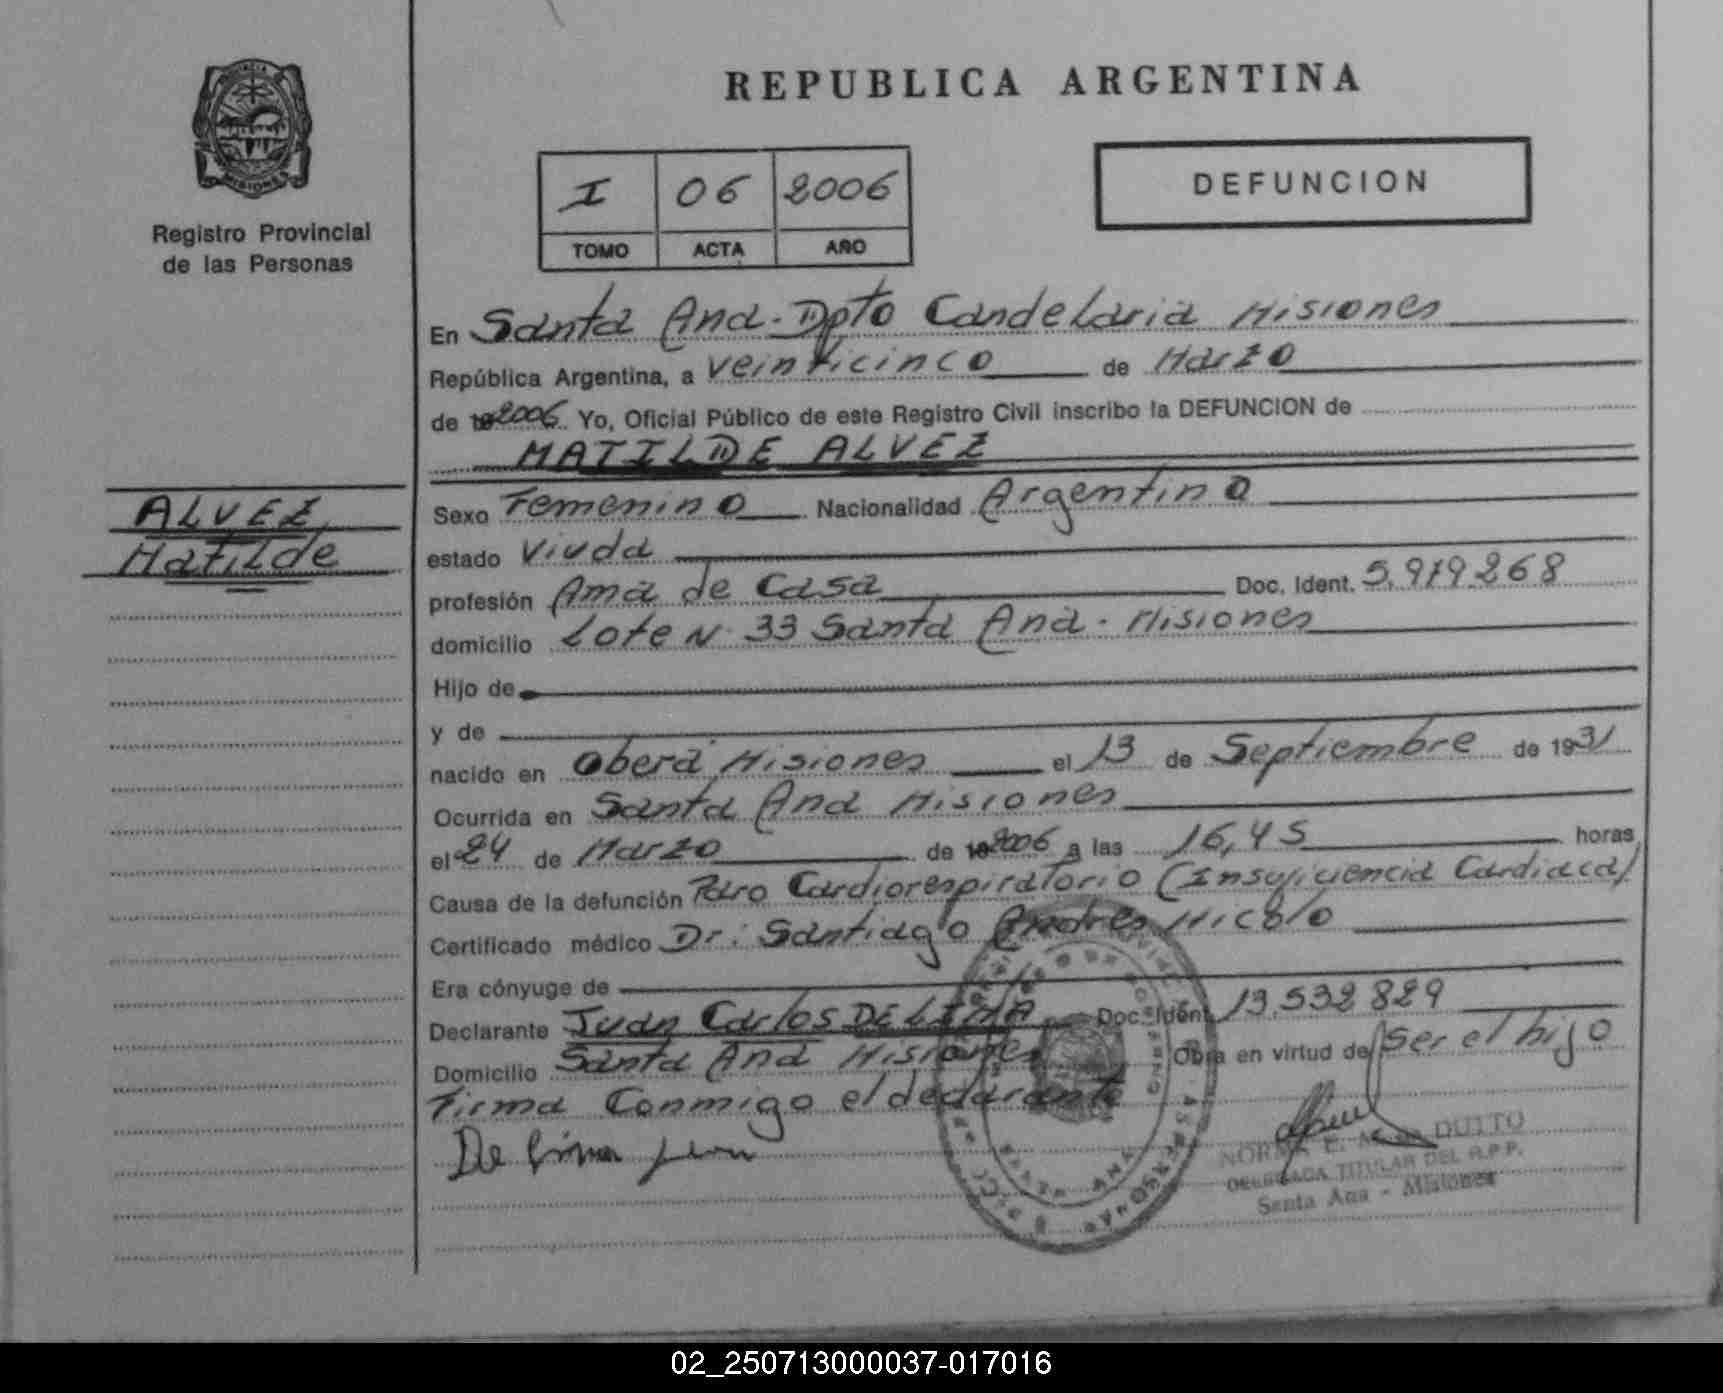 REPUBLICA ARGENTINA
PROVINCIA
MISIONES
Registro Provincial
de las Personas
I 06 2006
TOMO ACTA AÑO
DEFUNCION
En Santa Ana - Dpto Candelaria Misiones
República Argentina, a veinticinco de Marzo
de 192006 Yo, Oficial Público de este Registro Civil inscribo la DEFUNCION de
MATILDE ALVEZ
ALVEZ
Matilde
Sexo Femenino Nacionalidad Argentina
estado Viuda
profesión Ama de Casa Doc. Ident. 5.919.268
domicilio Lote N 33 Santa Ana - Misiones
Hijo de
y de
nacido en Oberá Misiones el 13 de Septiembre de 1931
Ocurrida en Santa Ana Misiones
el 24 de Marzo de 192006 a las 16,45 horas
Causa de la defunción Paro Cardiorespiratorio (Insuficiencia Cardiaca)
Certificado médico Dr: Santiago Andres Micolo
Era cónyuge de
Declarante Juan Carlos DE LIMA Doc. Ident. 13.532.829
Domicilio Santa Ana Misiones Obra en virtud de Ser el hijo
Firma Conmigo el declarante
De Lima Juan
NORMA E. DUTTO
DELEGADA TITULAR DEL R.P.P.
Santa Ana - Misiones
02_250713000037-017016